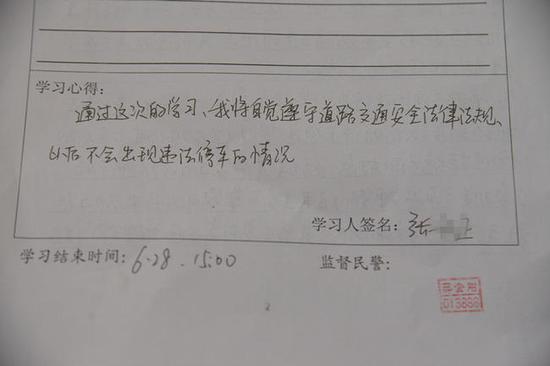 学习心得:
通过这次的学习、我将自觉遵守道路交通安全法律法规、
以后不会出现违法停车的情况
学习人签名: 张 正
学习结束时间: 6.28. 15:00 监督民警:
013886
2